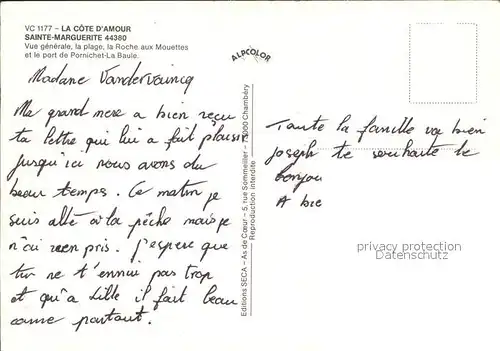 VC 1177 - LA CÔTE D'AMOUR
SAINTE-MARGUERITE 44380
Vue générale, la plage, la Roche aux Mouettes
et le port de Pornichet-La Baule.
ALPCOLOR
Madane Vandervaincq
Ma grand mere a bien reçu
ta lettre qui lui a fait plaisir
jusqu'ici nous avons du
beau temps. Ce matin je
suis allé à la pêche mais je
n'ai rien pris. j'espere que
tu ne t'ennui pas trop
et qu'a Lille il fait beau
come partout.
Editions SECA - As de Cœur - 5, rue Sommeiller - 73000 Chambéry
Reproduction interdite
Toute la famille va bien
joseph te souhaite le
bonjou
A bie
privacy protection
Datenschutz